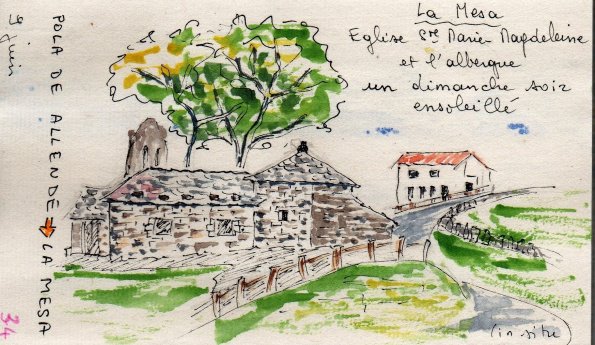 La Mesa
Eglise Ste Marie Magdeleine
et l'albergue
un dimanche soir
ensoleillé
9 juin
POLA DE ALLENDE → LA MESA
34
in situ